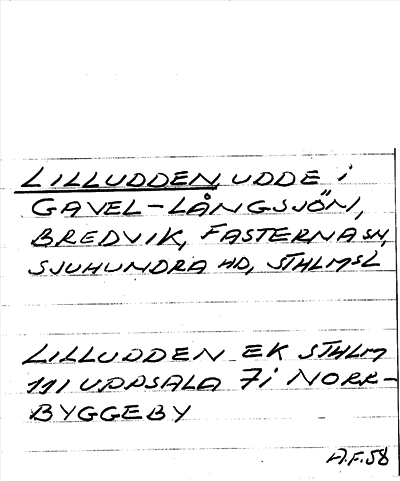 LILLUDDEN, UDDE i
GAVEL-LÅNGSJÖN,
BREDVIK, FASTERNA SN,
SJUHUNDRA HD, STHLMSL
LILLUDDEN EK STHLM
111 UPPSALA 7 i NORR-
BYGGEBY
A.F. 58